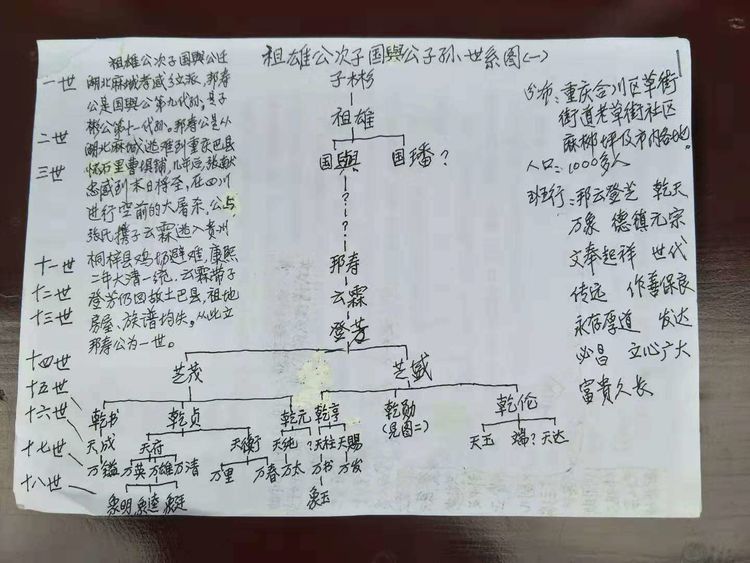 祖雄公次子国與公子孙世系图(一)
祖雄公次子国與公迁
湖北麻城孝感乡立派,邦寿
公是国與公第九代孙,是子
彬公第十一代孙。邦寿公是从
湖北麻城逃难到重庆巴县
怀石里曹俱铺,几年后,张献
忠威到本日将至,在四川
进行空前的大屠杀,公与
张氏携子云霖逃入贵州
桐梓县鸡场避难,康熙
二年大清一统,云霖带子
登芳仍回故土巴县,祖地
房屋、族谱均失。从此立
邦寿公为一世。
一世
二世
三世
十一世
十二世
十三世
十四世
十五世
十六世
十七世
十八世
子彬
祖雄
国與 国璠?
?
?
?
邦寿
云霖
登芳
芝茂 芝盛
乾书 乾贞 乾元 乾亨 乾勋 乾伦
(见图二)
天成 天府 天衡 天纯 ? 天柱 天赐 天玉 端? 天达
万鎰 万英 万雄 万清 万里 万春 万太 万书 万发
象明 象逵 象廷 象玉
分布:重庆合川区草街
街道老草街社区
麻柳坪及市内各地。
人口:1000多人
班行:邦云登芝 乾天
万象 德镇元宗
文奉起祥 世代
传远 作善保良
永存厚道 发达
必昌 立心广大
富貴久长